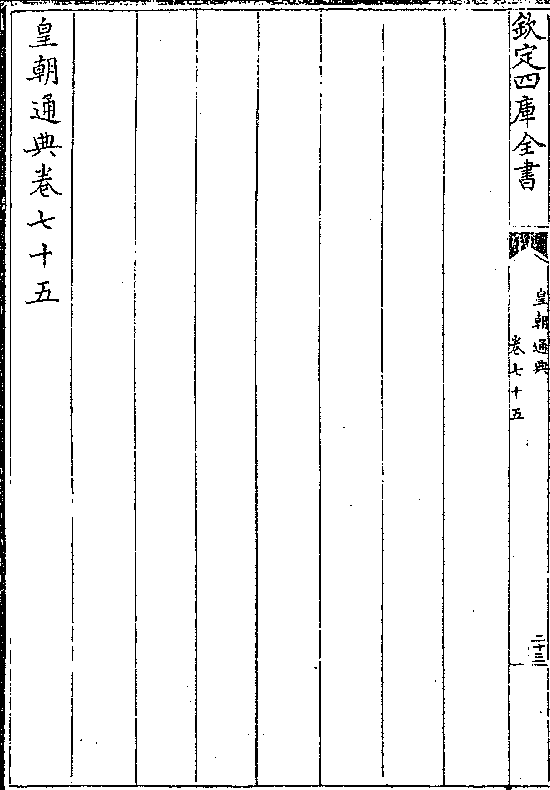 欽定四庫全書
皇朝通典
卷七十五
二十三
皇朝通典卷七十五